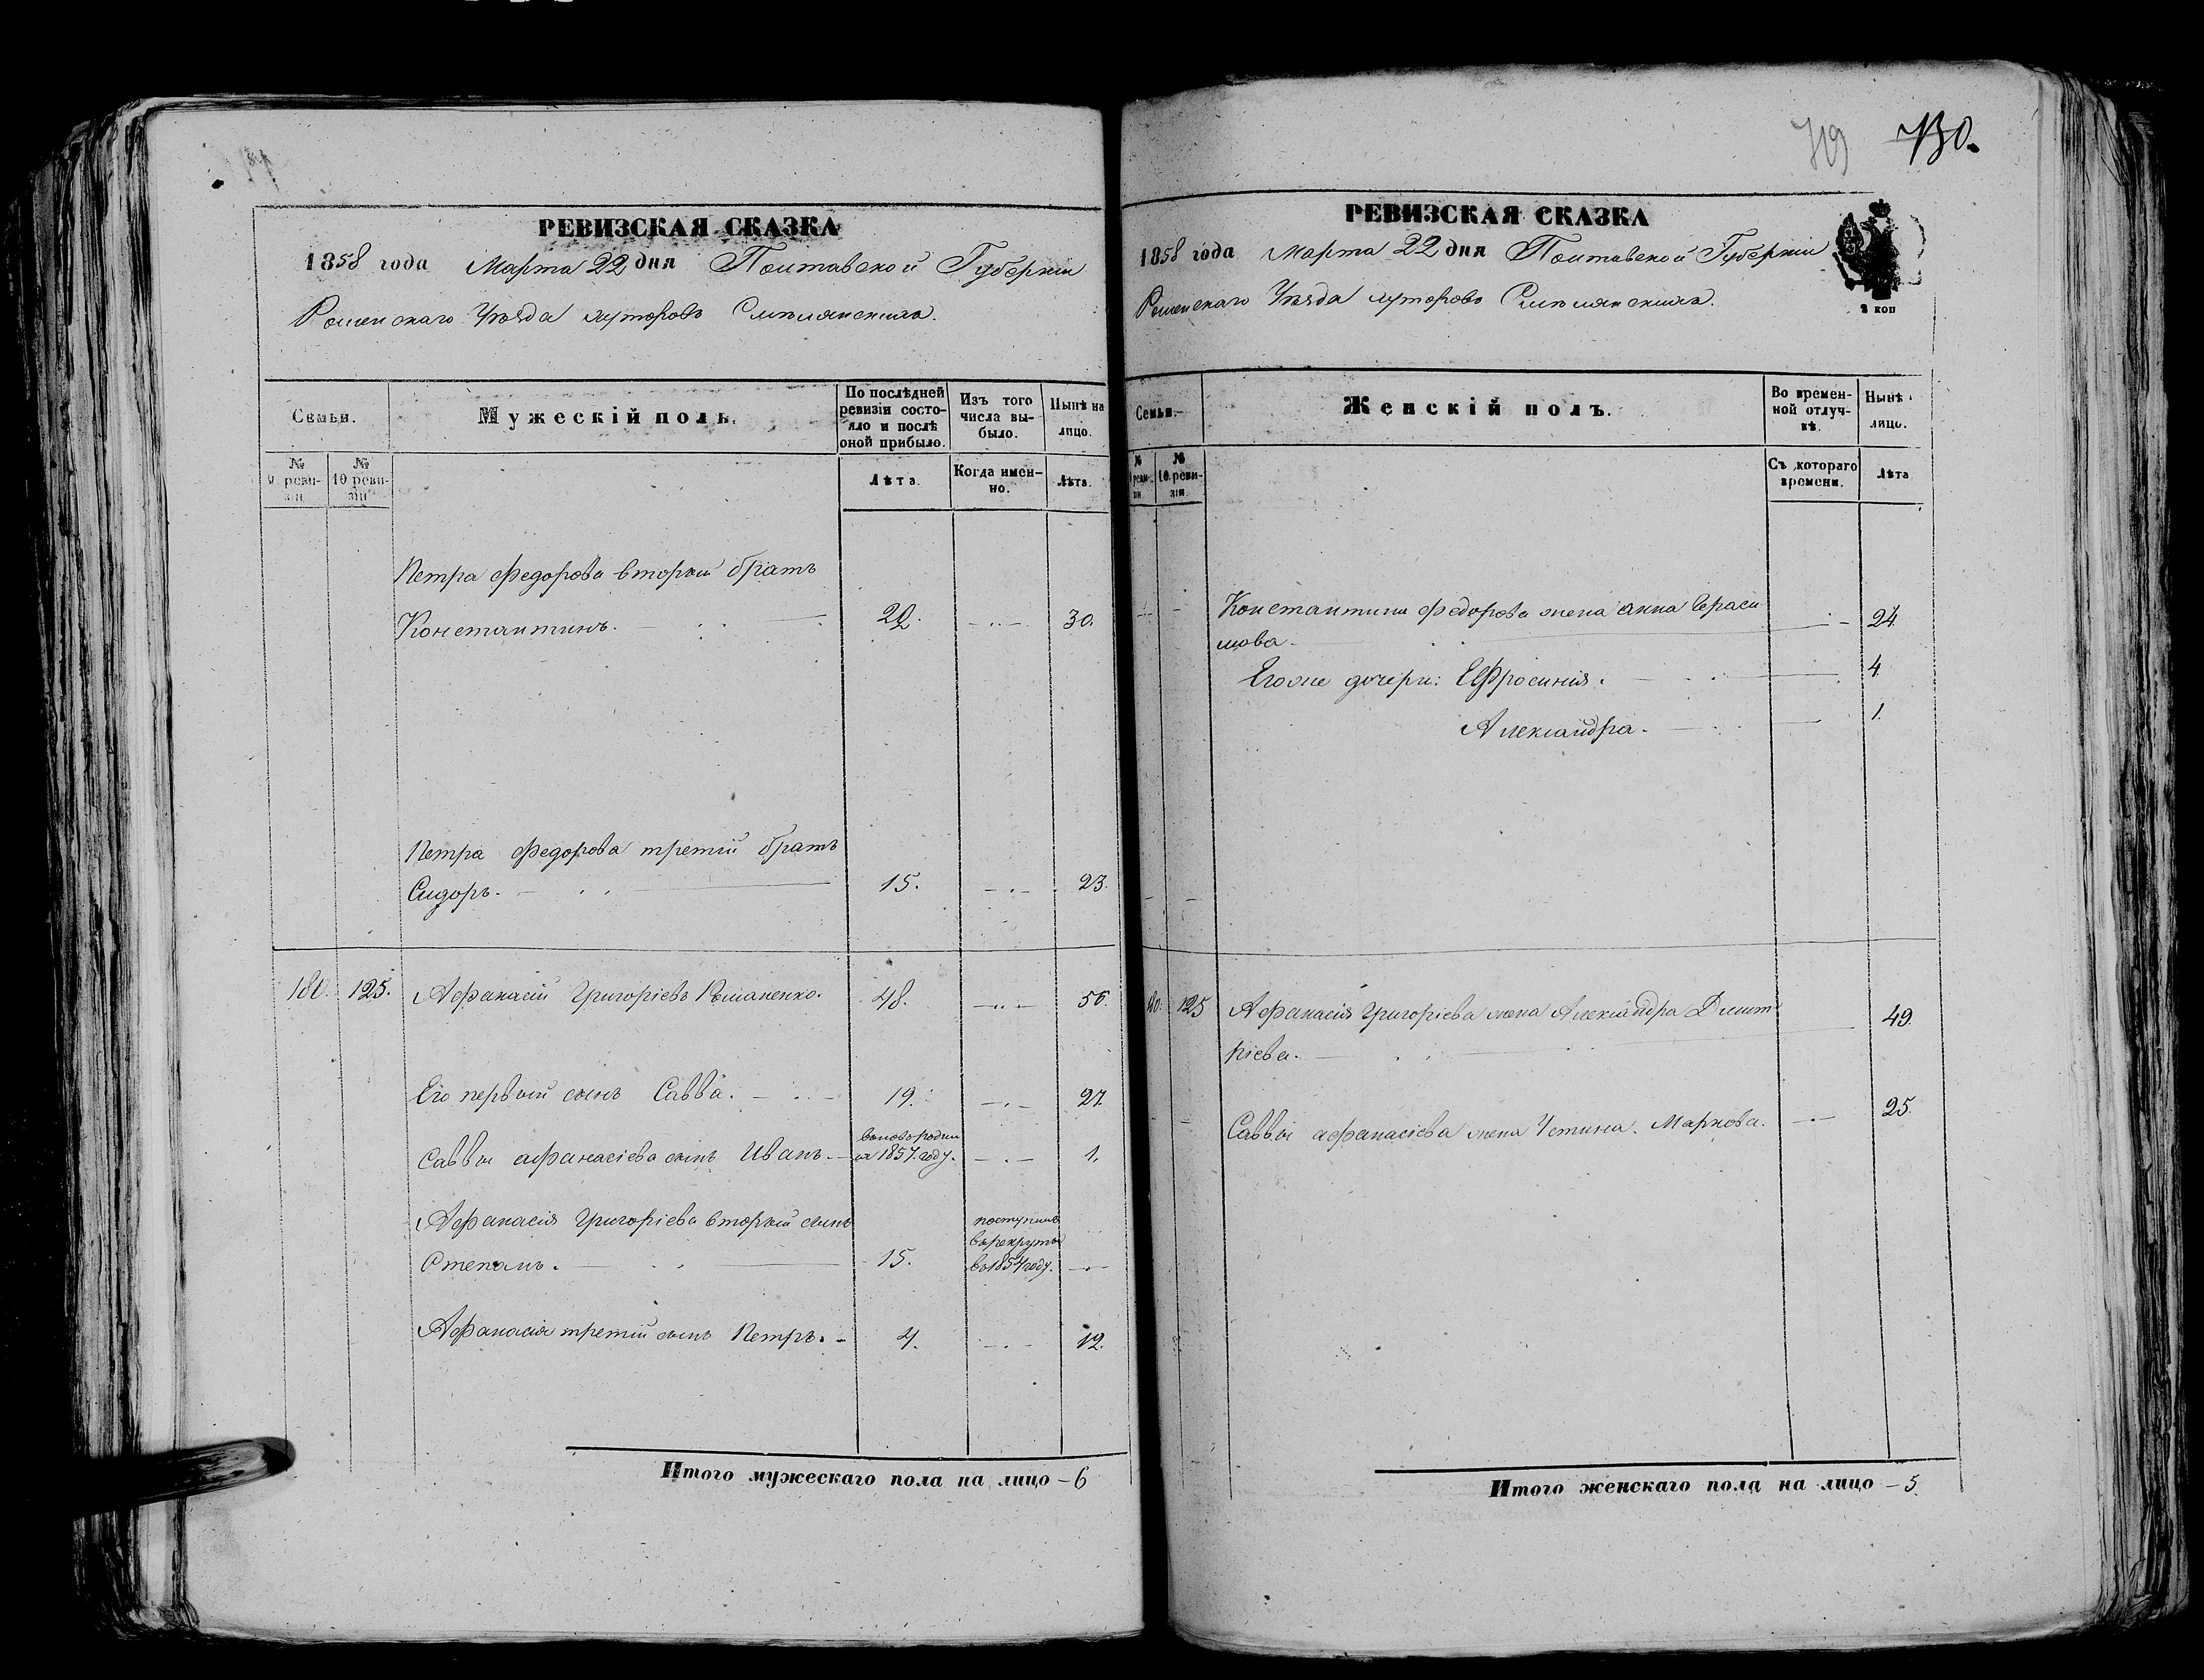 РЕВИЗСКАЯ СКАЗКА
1858 года Марта 22 дня Полтавской Губернiи
Роменскаго Уѣзда хуторовъ Смѣлянскихъ.
Семьи.
Мужескiй полъ.
По послѣдней ревизiи состо-
яло и послѣ
оной прибыло.
Изъ того
числа вы-
было.
Нынѣ на
лицо.
№
9. реви-
зiи
№
10 реви-
зiи
Лѣта.
Когда имен-
но.
Лѣта.
Петра Федорова вторый братъ
Константинъ. 22. 30.
Петра Федорова третiй братъ
Сидоръ. 15. 23.
180. 125. Афанасiй Григорiевъ Романенко. 48. 56.
Его первый сынъ Савва. 19. 27.
Саввы Афанасiева сынъ Иванъ. вновь родил
ся 1857 году. 1.
Афанасiя Григорiева вторый сынъ
Степанъ. 15. поступилъ
въ рекруты
въ 1854 году.
Афанасiя третiй сынъ Петръ. 4. 12.
Итого мужескаго пола на лицо – 6
719 730.
РЕВИЗСКАЯ СКАЗКА
1858 года Марта 22 дня Полтавской Губернiи
Роменскаго Уѣзда хуторовъ Смѣлянскихъ.
3 коп
Семьи.
Женскiй полъ.
Во времен-
ной отлуч-
кѣ.
Нынѣ
лицо.
№
реви-
зiи
№
10. реви-
зiи.
Съ котораго
времени.
Лѣта
Константина Федорова жена Анна Гераси
мова. 24.
Его же дочери: Ефросинiя. 4.
Александра. 1.
125 Афанасiя Григорiева жена Александра Дмит
рiева. 49.
Саввы Афанасiева жена Устина Маркова. 25.
Итого женскаго пола на лицо – 5.